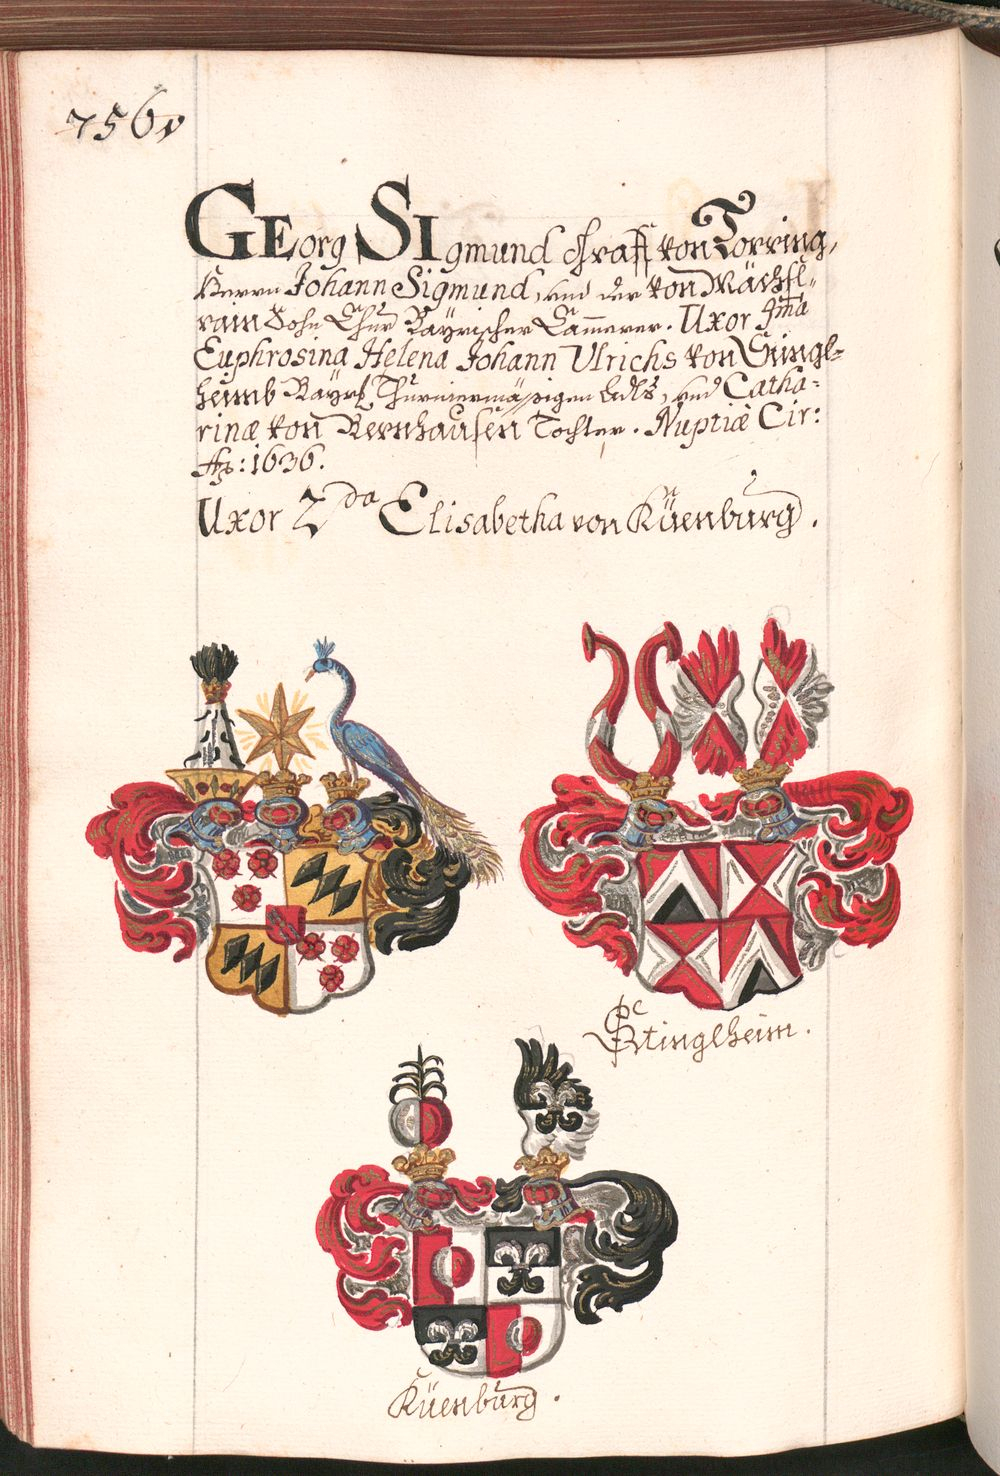 756v
GEorg SIgmund Graff von Törring,
Herrn Johann Sigmund, und der von Mächsl-
rain Sohn Chur Bäyrischer Cammerer. Uxor Ima
Euphrosina Helena Johann Ulrichs von Stingl-
heimb Bäyrl Thurniermässigen Edls, und Catha-
rinæ von Bernhausen Tochter. Nuptiæ Cir:
Aō: 1636.
Uxor 2da Elisabetha von Küenburg.
Stinglheim.
Küenburg.